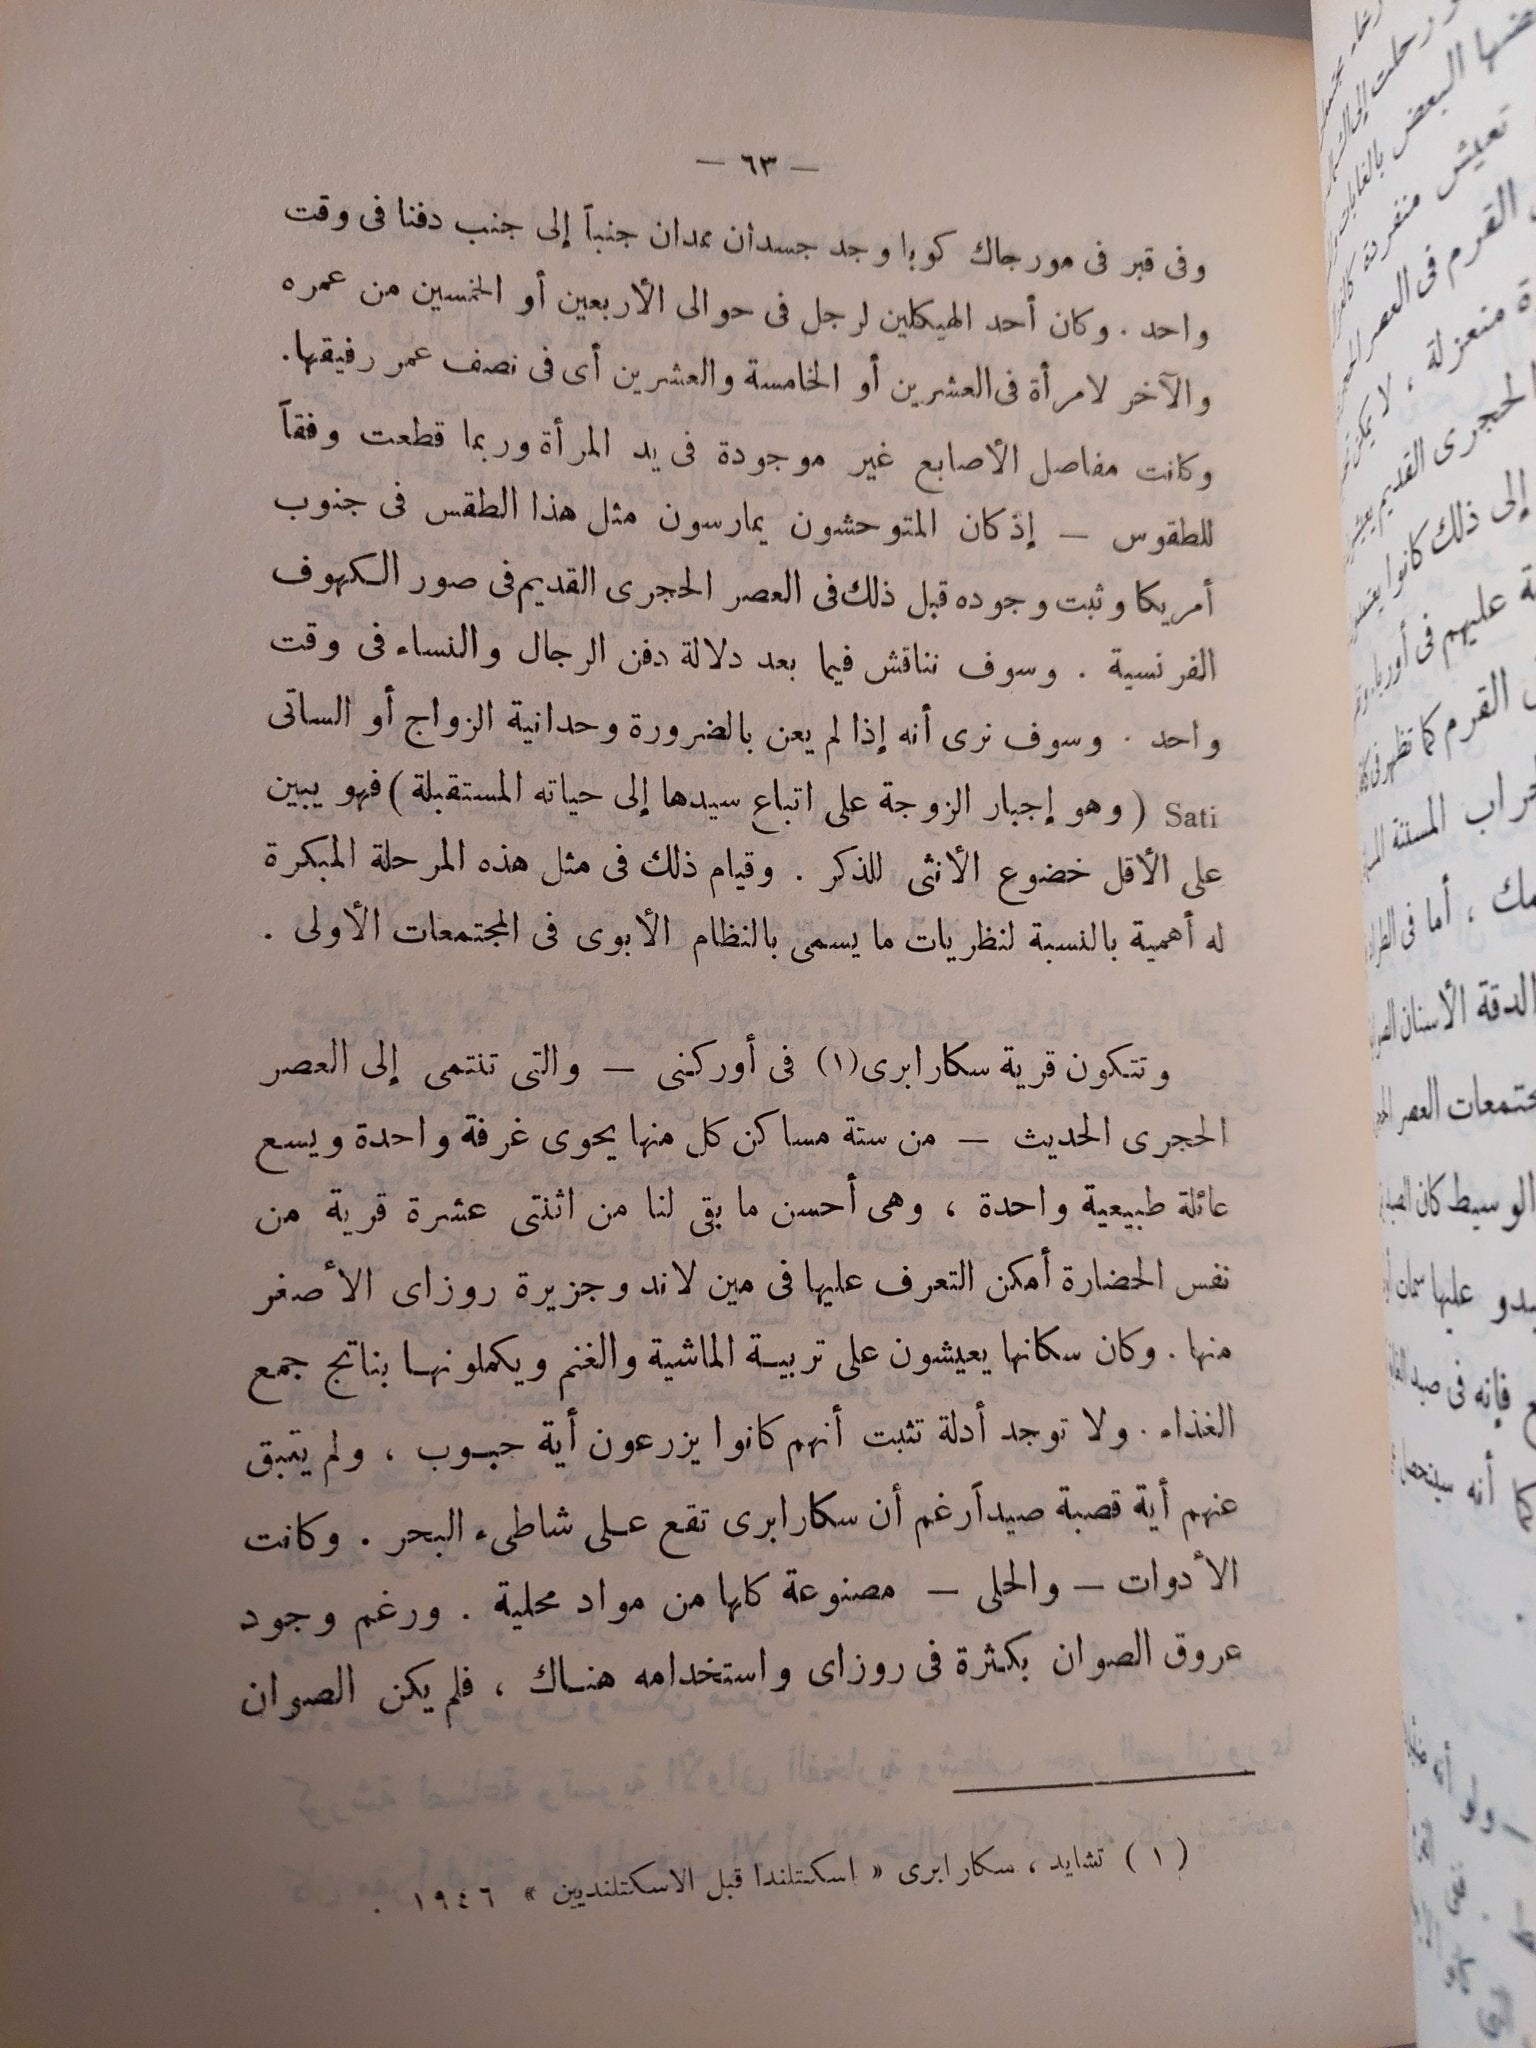 — ٦٣ —
وفى قبر فى مورجاك كوبا وجد جسدان ممدان جنباً إلى جنب دفنا فى وقت
واحد . وكان أحد الهيكلين لرجل فى حوالى الأربعين أو الخمسين من عمره
والآخر لامرأة فى العشرين أو الخامسة والعشرين أى فى نصف عمر رفيقها .
وكانت مفاصل الأصابع غير موجودة فى يد المرأة وربما قطعت وفقاً
للطقوس — إذ كان المتوحشون يمارسون مثل هذا الطقس فى جنوب
أمريكا وثبت وجوده قبل ذلك فى العصر الحجرى القديم فى صور الكهوف
الفرنسية . وسوف نناقش فيما بعد دلالة دفن الرجال والنساء فى وقت
واحد . وسوف نرى أنه إذا لم يعن بالضرورة وحدانية الزواج أو الساتى
Sati ( وهو إجبار الزوجة على اتباع سيدها إلى حياته المستقبلة ) فهو يبين
على الأقل خضوع الأنثى للذكر . وقيام ذلك فى مثل هذه المرحلة المبكرة
له أهمية بالنسبة لنظريات ما يسمى بالنظام الأبوى فى المجتمعات الأولى .
وتتكون قرية سكارابرى(١) فى أوركنى — والتى تنتمى إلى العصر
الحجرى الحديث — من ستة مساكن كل منها يحوى غرفة واحدة ويسع
عائلة طبيعية واحدة ، وهى أحسن ما بقى لنا من اثنتى عشرة قرية من
نفس الحضارة أمكن التعرف عليها فى مين لاند وجزيرة روزاى الأصغر
منها . وكان سكانها يعيشون على تربية الماشية والغنم ويكملونها بناتج جمع
الغذاء . ولا توجد أدلة تثبت أنهم كانوا يزرعون أية حبوب ، ولم يتبق
عنهم أية قصبة صيد رغم أن سكارابرى تقع على شاطىء البحر . وكانت
الأدوات — والحلى — مصنوعة كلها من مواد محلية . ورغم وجود
عروق الصوان بكثرة فى روزاى واستخدامه هناك ، فلم يكن الصوان
( ١ ) تشايد ، سكارابرى « اسكتلندا قبل الاسكتلنديين » ١٩٤٦ .